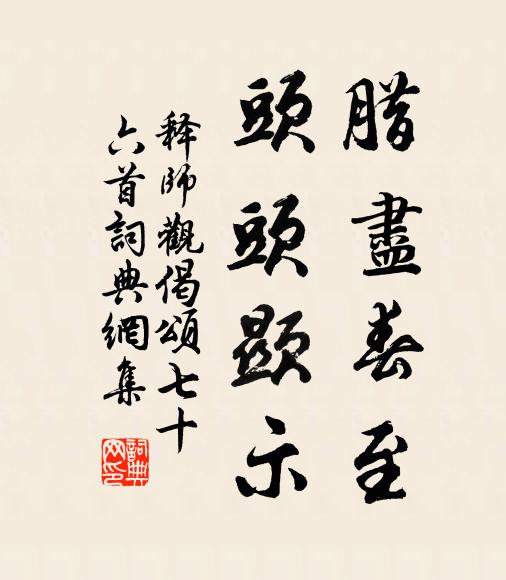 腊盡春至
頭頭顯示
釋師觀偈頌七十
六首詞典網集
詞典
网印